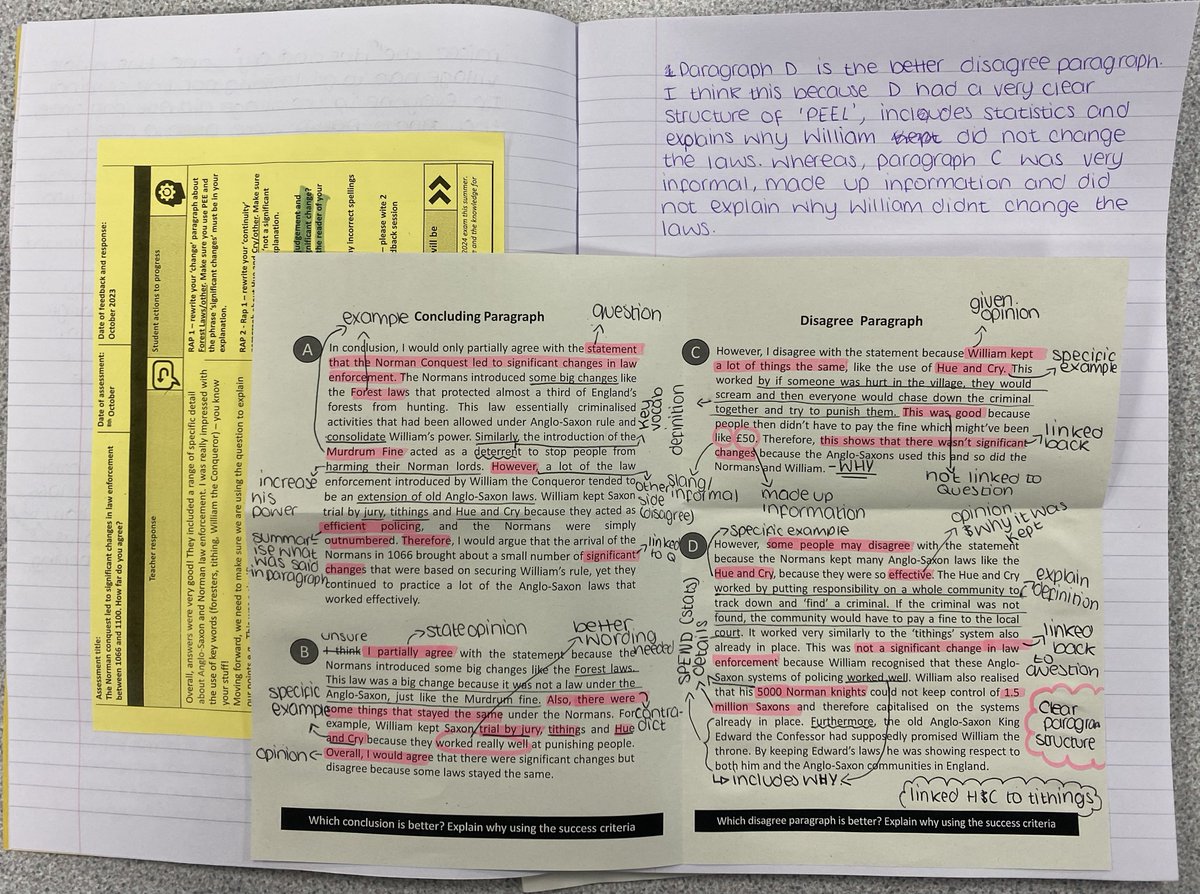 1 Paragraph D is the better disagree paragraph.
I think this because D had a very clear
structure of 'PEEL', includes statistics and
explains why William kept did not change
the laws. Whereas, paragraph C was very
informal, made up information and did
not explain why William didnt change the
laws.
Assessment title:
The Norman conquest led to significant changes in law enforcement
between 1066 and 1100. How far do you agree?
Date of assessment:
October
Date of feedback and response:
October 2023
Teacher response
Student actions to progress
Overall, answers were very good! They included a range of specific detail
about Anglo-Saxon and Norman law enforcement. I was really impressed with
the use of key words (foresters, tithing, William the Conqueror) – you know
your stuff!
Moving forward, we need to make sure we are using the question to explain
RAP 1 – rewrite your 'change' paragraph about
Forest Laws/other. Make sure you use PEE and
the phrase 'significant changes' must be in your
explanation.
RAP 2 - Rap 1 – rewrite your 'continuity'
Cry/other. Make sure
'not a significant
explanation.
judgement and
significant change?
the reader of your
incorrect spellings
– please wite 2
session
will be
2024 exam this summer.
and the knowledge for
example
Concluding Paragraph
question
A
In conclusion, I would only partially agree with the statement
that the Norman Conquest led to significant changes in law
enforcement. The Normans introduced some big changes like
the Forest laws that protected almost a third of England's
forests from hunting. This law essentially criminalised
activities that had been allowed under Anglo-Saxon rule and
consolidate William's power. Similarly, the introduction of the
Murdrum Fine acted as a deterrent to stop people from
harming their Norman lords. However, a lot of the law
enforcement introduced by William the Conqueror tended to
be an extension of old Anglo-Saxon laws. William kept Saxon
trial by jury, tithings and Hue and Cry because they acted as
efficient policing, and the Normans were simply
outnumbered. Therefore, I would argue that the arrival of the
Normans in 1066 brought about a small number of significant
changes that were based on securing William's rule, yet they
continued to practice a lot of the Anglo-Saxon laws that
worked effectively.
key
vocab
increase
his
power
other
side
(disagree)
summar
ise what
was said
in paragraph
linked
to Q
unsure
state opinion
better
wording
needed
B
I think I partially agree with the statement because the
Normans introduced some big changes like the Forest laws.
This law was a big change because it was not a law under the
Anglo-Saxon, just like the Murdrum fine. Also, there were
some things that stayed the same under the Normans. For
example, William kept Saxon trial by jury, tithings and Hue
and Cry because they worked really well at punishing people.
Overall, I would agree that there were significant changes but
disagree because some laws stayed the same.
specific
example
contra-
dict
opinion
Which conclusion is better? Explain why using the success criteria
given
opinion
Disagree Paragraph
C
However, I disagree with the statement because William kept
a lot of things the same, like the use of Hue and Cry. This
worked by if someone was hurt in the village, they would
scream and then everyone would chase down the criminal
together and try to punish them. This was good because
people then didn't have to pay the fine which might've been
like £50 Therefore, this shows that there wasn't significant
changes because the Anglo-Saxons used this and so did the
Normans and William. - WHY
specific
example
definition
linked
back
slang/
informal
made up
information
not linked to
Question
specific example
opinion
& why it was
kept
D
However, some people may disagree with the statement
because the Normans kept many Anglo-Saxon laws like the
Hue and Cry, because they were so effective. The Hue and Cry
worked by putting responsibility on a whole community to
track down and 'find' a criminal. If the criminal was not
found, the community would have to pay a fine to the local
court. It worked very similarly to the 'tithings' system also
already in place. This was not a significant change in law
enforcement because William recognised that these Anglo-
Saxon systems of policing worked well. William also realised
that his 5000 Norman knights could not keep control of 1.5
million Saxons and therefore capitalised on the systems
already in place. Furthermore, the old Anglo-Saxon King
Edward the Confessor had supposedly promised William the
throne. By keeping Edward's laws he was showing respect to
both him and the Anglo-Saxon communities in England.
explain
definition
linked
back
to
question
SPEND (stats)
details
clear
paragraph
structure
includes WHY
linked H&C to tithings
Which disagree paragraph is better? Explain why using the success criteria